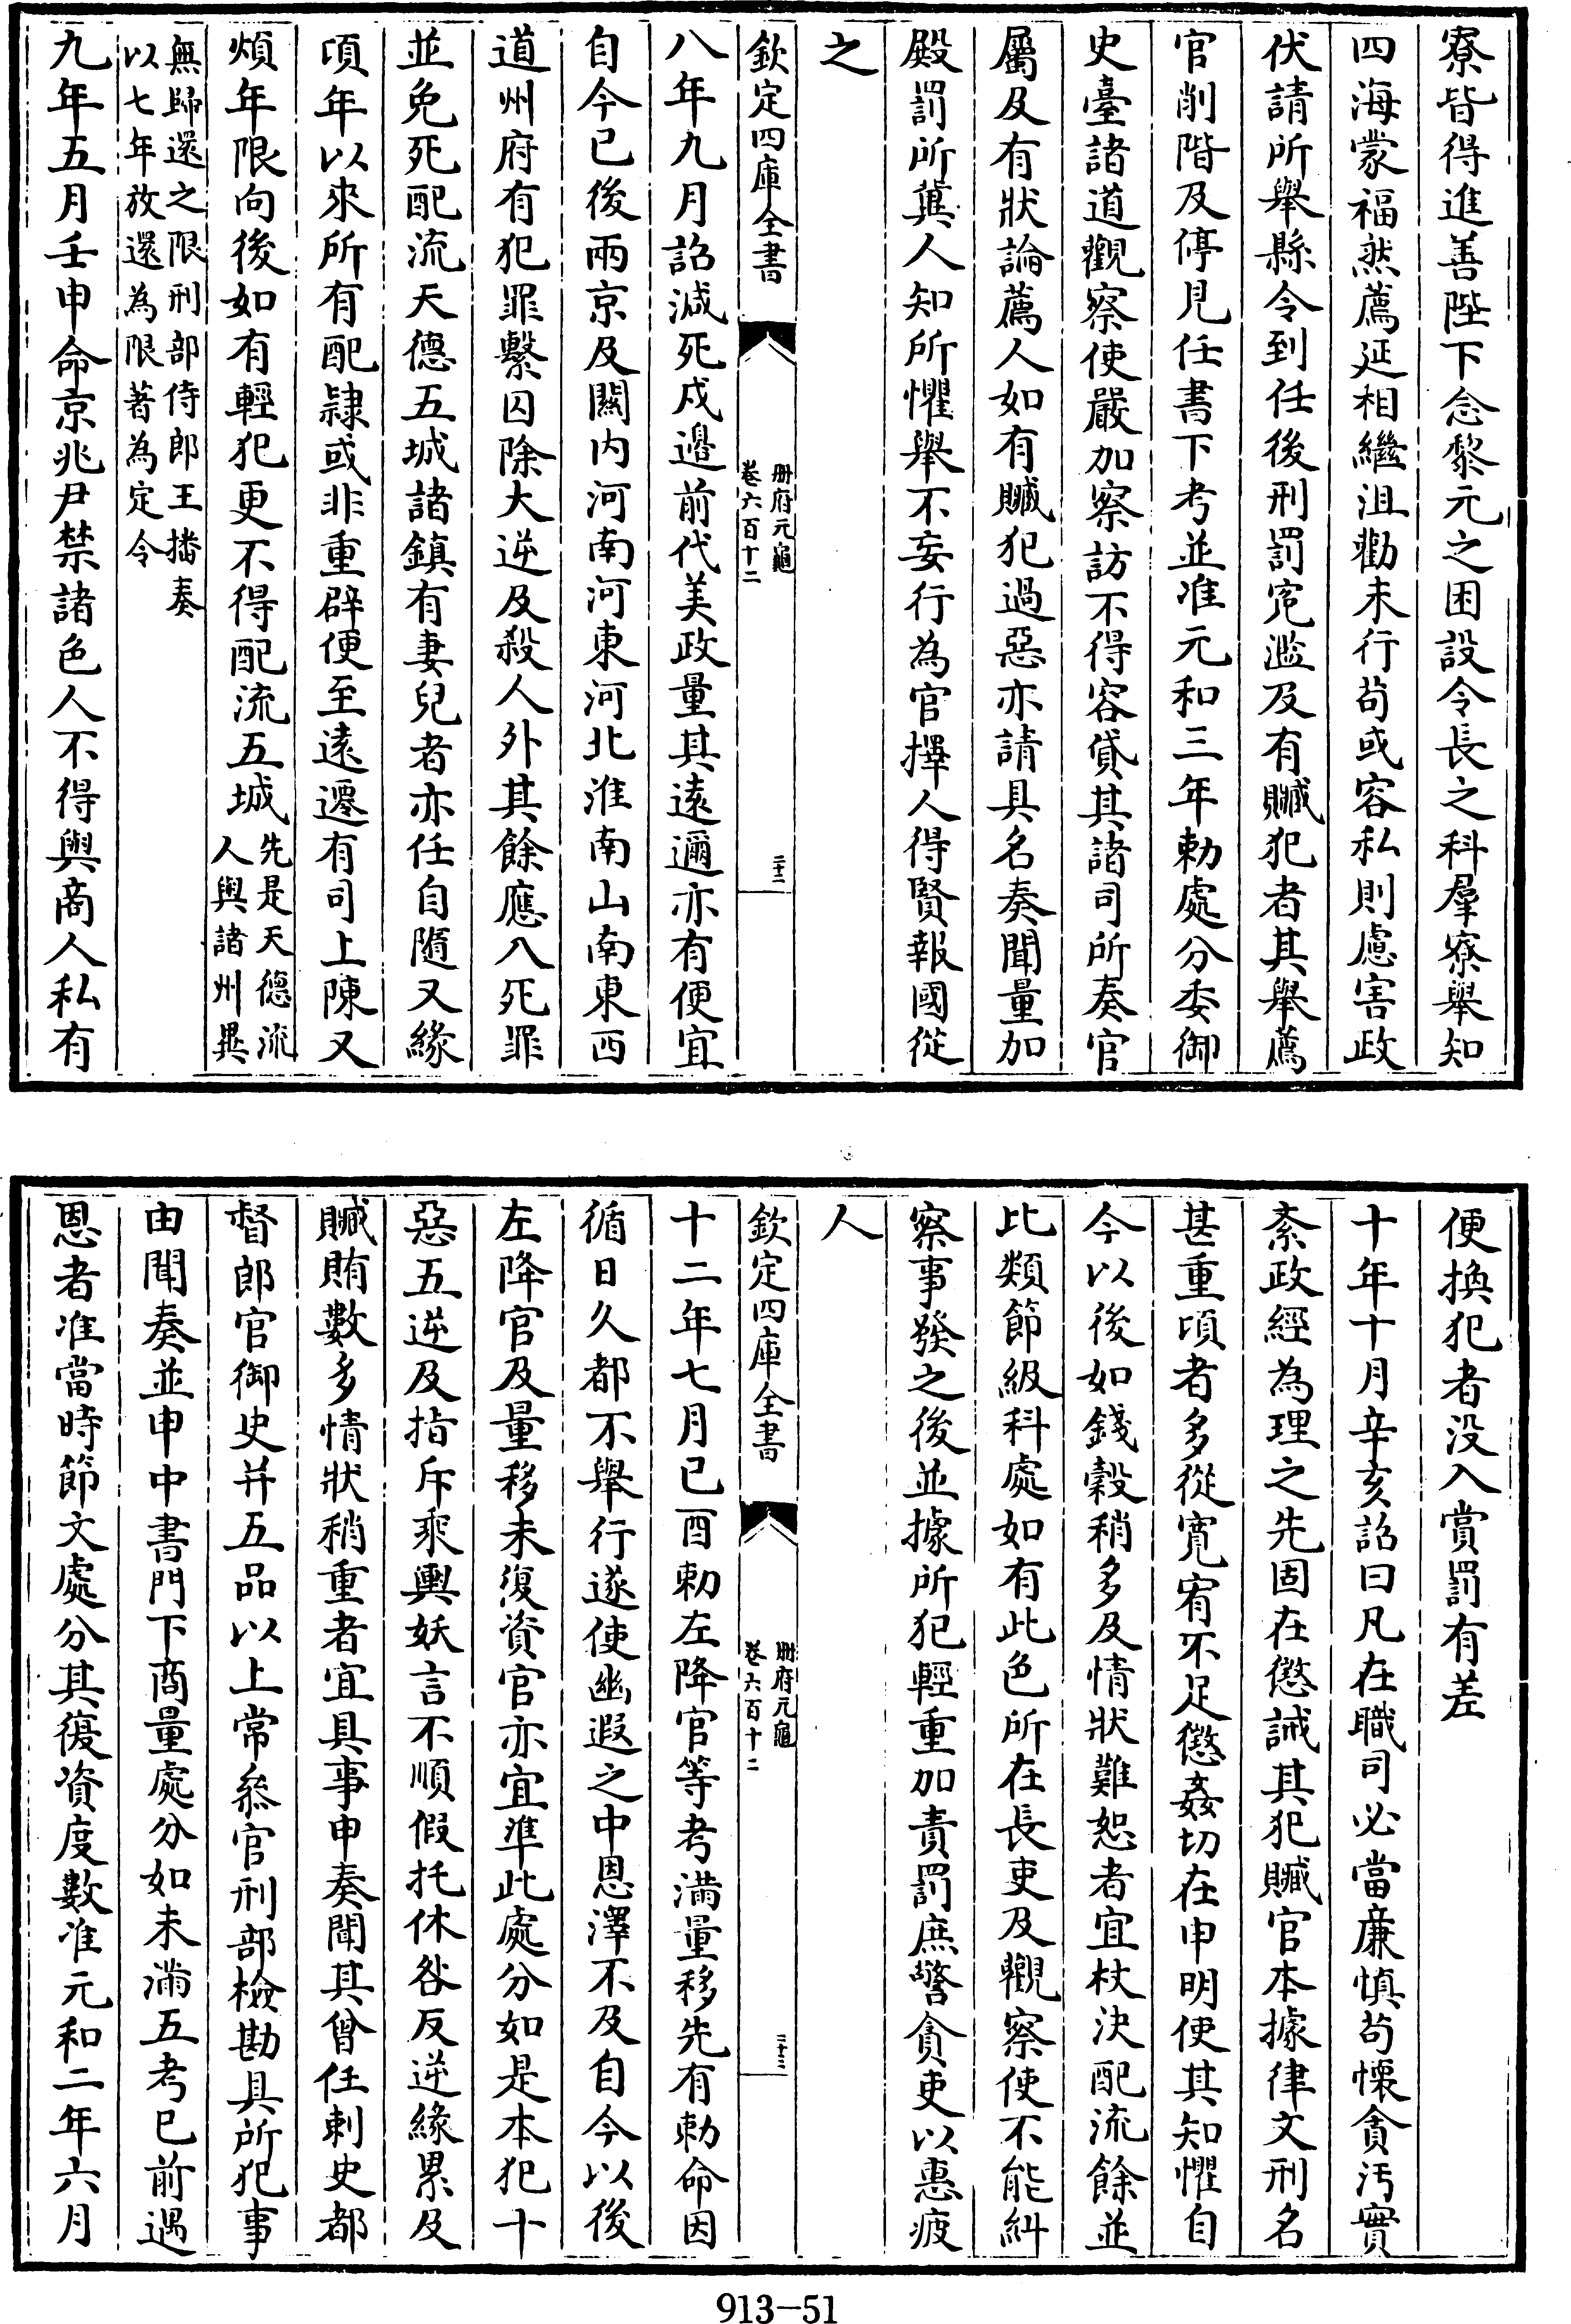 寮皆得進善陛下念黎元之困設令長之科羣寮舉知
四海蒙福然薦延相繼沮勸未行苟或容私則慮害政
伏請所舉縣令到任後刑罰寃濫及有贓犯者其舉薦
官削階及停見任書下考並准元和三年勅處分委御
史臺諸道觀察使嚴加察訪不得容貸其諸司所奏官
屬及有狀論薦人如有贓犯過惡亦請具名奏聞量加
殿罰所冀人知所懼舉不妄行為官擇人得賢報國從
之
欽定四庫全書
冊府元龜
卷六百十二
二十二
八年九月詔減死戍邊前代美政量其遠邇亦有便宜
自今已後兩京及關內河南河東河北淮南山南東西
道州府有犯罪繫囚除大逆及殺人外其餘應入死罪
並免死配流天德五城諸鎮有妻兒者亦任自隨又緣
頃年以來所有配隸或非重辟便至遠遷有司上陳又
煩年限向後如有輕犯更不得配流五城
先是天德流
人與諸州異
無歸還之限刑部侍郎王播奏
以七年放還為限著為定令
九年五月壬申命京兆尹禁諸色人不得與商人私有
便換犯者没入賞罰有差
十年十月辛亥詔曰凡在職司必當廉慎茍懷貪汚實
紊政經為理之先固在懲誡其犯贓官本據律文刑名
甚重頃者多從寛宥不足懲姦切在申明使其知懼自
今以後如錢穀稍多及情狀難恕者宜杖決配流餘並
比類節級科處如有此色所在長吏及觀察使不能糾
察事發之後並據所犯輕重加責罰庶警貪吏以惠疲
人
欽定四庫全書
冊府元龜
卷六百十二
二十三
十二年七月已酉勅左降官等考滿量移先有勅命因
循日久都不舉行遂使幽遐之中恩澤不及自今以後
左降官及量移未復資官亦宜準此處分如是本犯十
惡五逆及指斥乘輿妖言不順假托休咎反逆緣累及
贓賄數多情狀稍重者宜具事申奏聞其曾任刺史都
督郎官御史并五品以上常叅官刑部檢勘具所犯事
由聞奏並申中書門下商量處分如未滿五考已前遇
恩者准當時節文處分其復資度數准元和二年六月
913-51